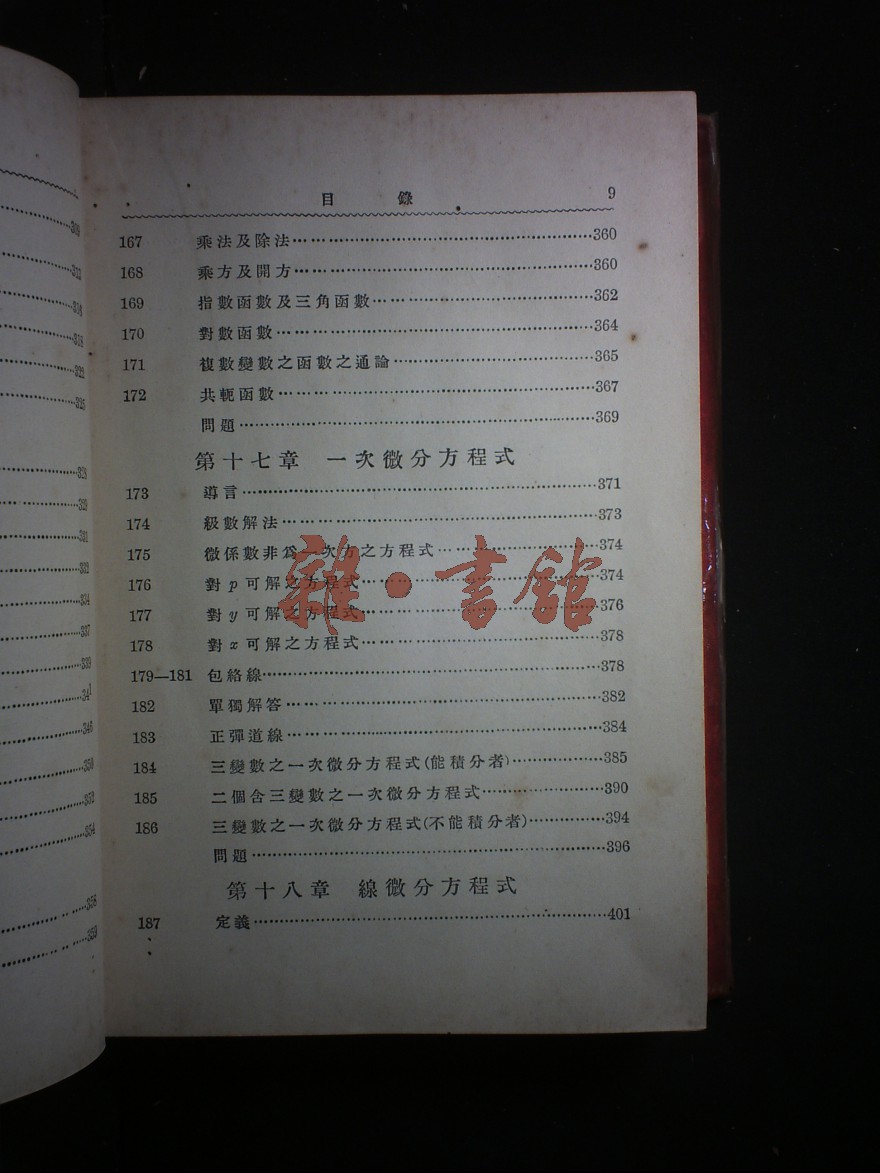 309
313
316
318
322
325
328
329
331
333
334
337
339
346
350
352
354
358
359
目 錄 9
167 乘法及除法 360
168 乘方及開方 360
169 指數函數及三角函數 362
170 對數函數 364
171 複數變數之函數之通論 365
172 共軛函數 367
問題 369
第十七章 一次微分方程式
173 導言 371
174 級數解法 373
175 微係數非爲一次方之方程式 374
176 對p可解之方程式 374
177 對y可解之方程式 376
178 對x可解之方程式 378
179—181 包絡線 378
182 單獨解答 382
183 正彈道線 384
184 三變數之一次微分方程式(能積分者) 385
185 二個含三變數之一次微分方程式 390
186 三變數之一次微分方程式(不能積分者) 394
問題 396
第十八章 線微分方程式
187 定義 401
雜·書館